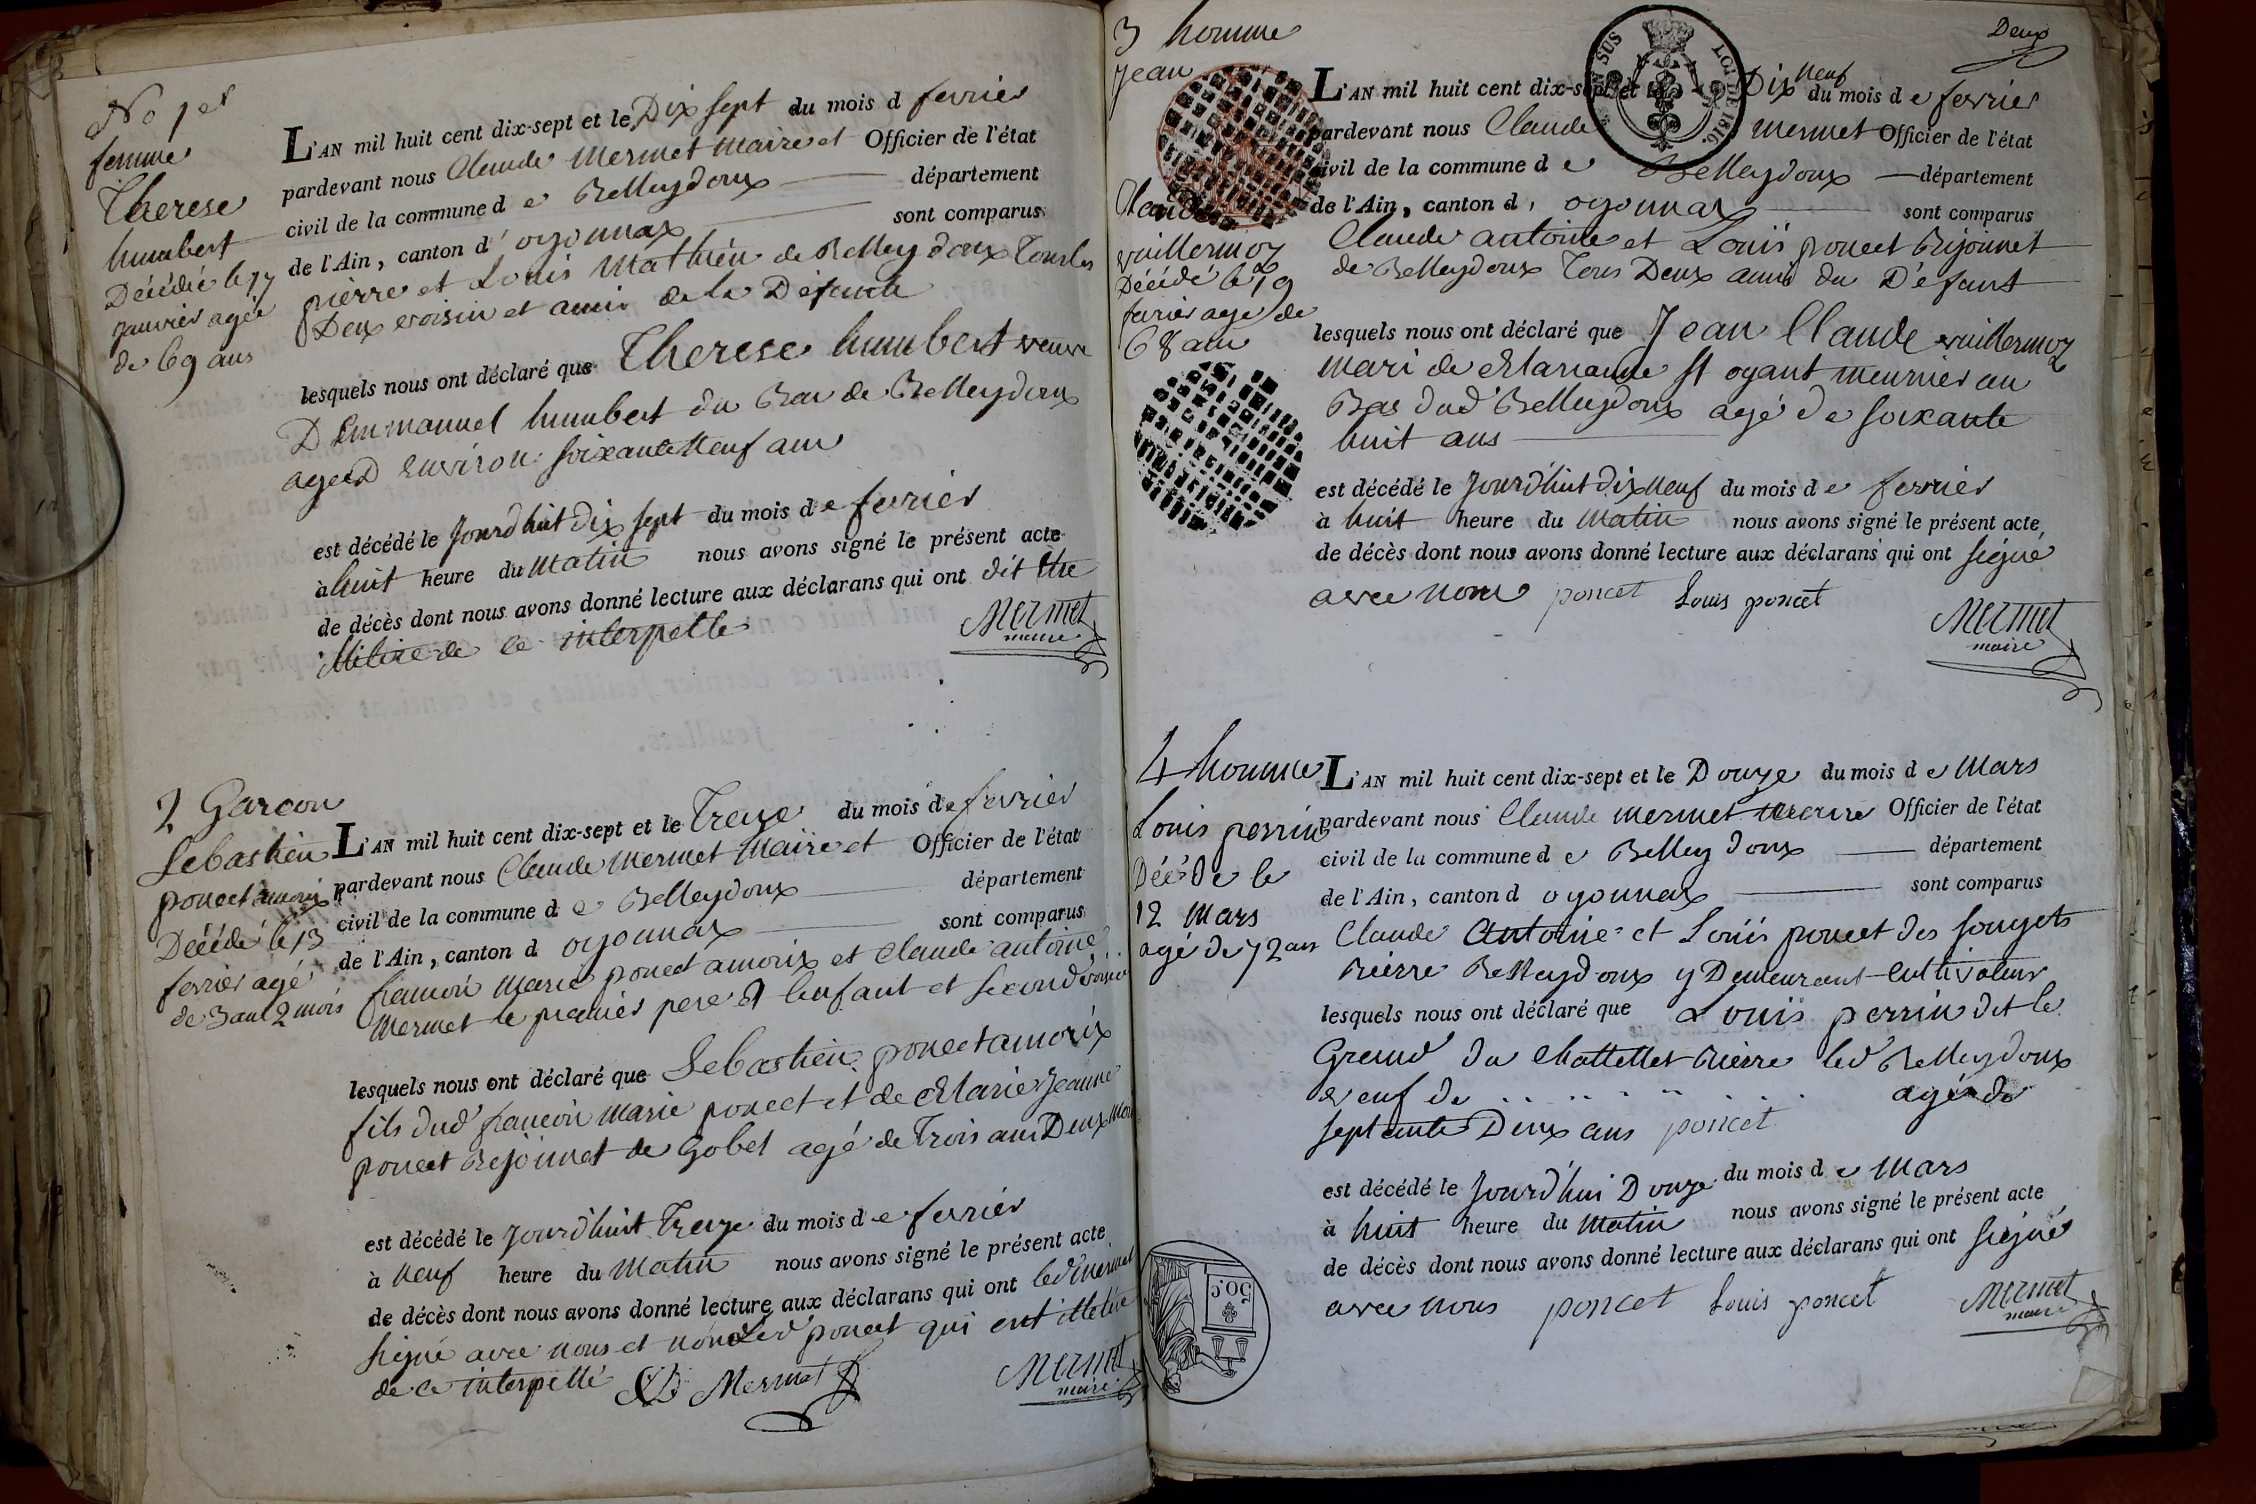 No 1er
femme
Therese
humbert
Décédée le 17
janvier agée
de 69 ans
L'AN mil huit cent dix-sept et le Dix sept du mois d fevrier
pardevant nous Claude Mermet maire et Officier de l'état
civil de la commune d e Belleydoux département
de l'Ain, canton d' oyonnax sont comparus
pierre et Louis Mathieu de Belleydoux Tous les
Deux voisin et amis de la Défunte
lesquels nous ont déclaré que Therese humbert veuve
D Emmanuel humbert du Bas de Belleydoux
agée D environ soixante Neuf ans
est décédé le Jourd'huit dix sept du mois d e fevrier
à huit heure du Matin nous avons signé le présent acte
de décès dont nous avons donné lecture aux déclarans qui ont dit Etre
illitiré de ce interpellé
Mermet
maire
2 Garcon
Sebastien
poncet amorix
Décédé le 13
fevrier agé
de 3 ans 2 mois
L'AN mil huit cent dix-sept et le Treize du mois de fevrier
pardevant nous Claude Mermet Maire et Officier de l'état
civil de la commune d e Belleydoux département
de l'Ain, canton d oyonnax sont comparus
francois Marie poncet amorix et Claude antoine
Mermet le premier pere D lenfant et second
lesquels nous ont déclaré que Sebastien poncet amorix
fils dud francois marie poncet et de Marie Jeanne
poncet Bijonnet de Gobet agé de Trois ans Deux Mois
est décédé le Jourd'huit Treize du mois d e fevrier
à Neuf heure du Matin nous avons signé le présent acte
de décès dont nous avons donné lecture aux déclarans qui ont led Mermet
signé avec nous et non Led poncet qui ent illetiré
de ce interpellé Mermet
Mermet
maire
Deux
3 homme
Jean
Claude
vuillermoz
Décédé le 19
fevrier age de
68 ans
L'AN mil huit cent dix-sept et le Dix neuf du mois d e fevrier
pardevant nous Claude Mermet Officier de l'état
civil de la commune d e Belleydoux département
de l'Ain, canton d' oyonnax sont comparus
Claude antoine et Louis poncet Bijonnet
de Belleydoux Tous Deux amis du Défunt
lesquels nous ont déclaré que Jean Claude vuillermoz
Mari de Marianne St oyant meunier au
Bas dud Belleydoux agé de soixante
huit ans
est décédé le Jourd'huit dix Neuf du mois d e fevrier
à huit heure du Matin nous avons signé le présent acte
de décès dont nous avons donné lecture aux déclarans qui ont signé
avec nous poncet Louis poncet
Mermet
maire
LOI DE 1816.
4 homme
Louis perrin
Décédé le
12 Mars
agé de 72 ans
L'AN mil huit cent dix-sept et le Douze du mois d e Mars
pardevant nous Claude Mermet Maire Officier de l'état
civil de la commune d e Belleydoux département
de l'Ain, canton d oyonnax sont comparus
Claude Antoine et Louis poncet des fouyets
Rierre Belleydoux y Demeurant cultivateur
lesquels nous ont déclaré que Louis perrin dit le
Grand du Chattellet Rierre led Belleydoux
veuf de . . . . . . agé de
septante Deux ans poncet
est décédé le Jourd'hui Douze du mois d e Mars
à huit heure du Matin nous avons signé le présent acte
de décès dont nous avons donné lecture aux déclarans qui ont signé
avec nous poncet Louis poncet
Mermet
maire
50 C.